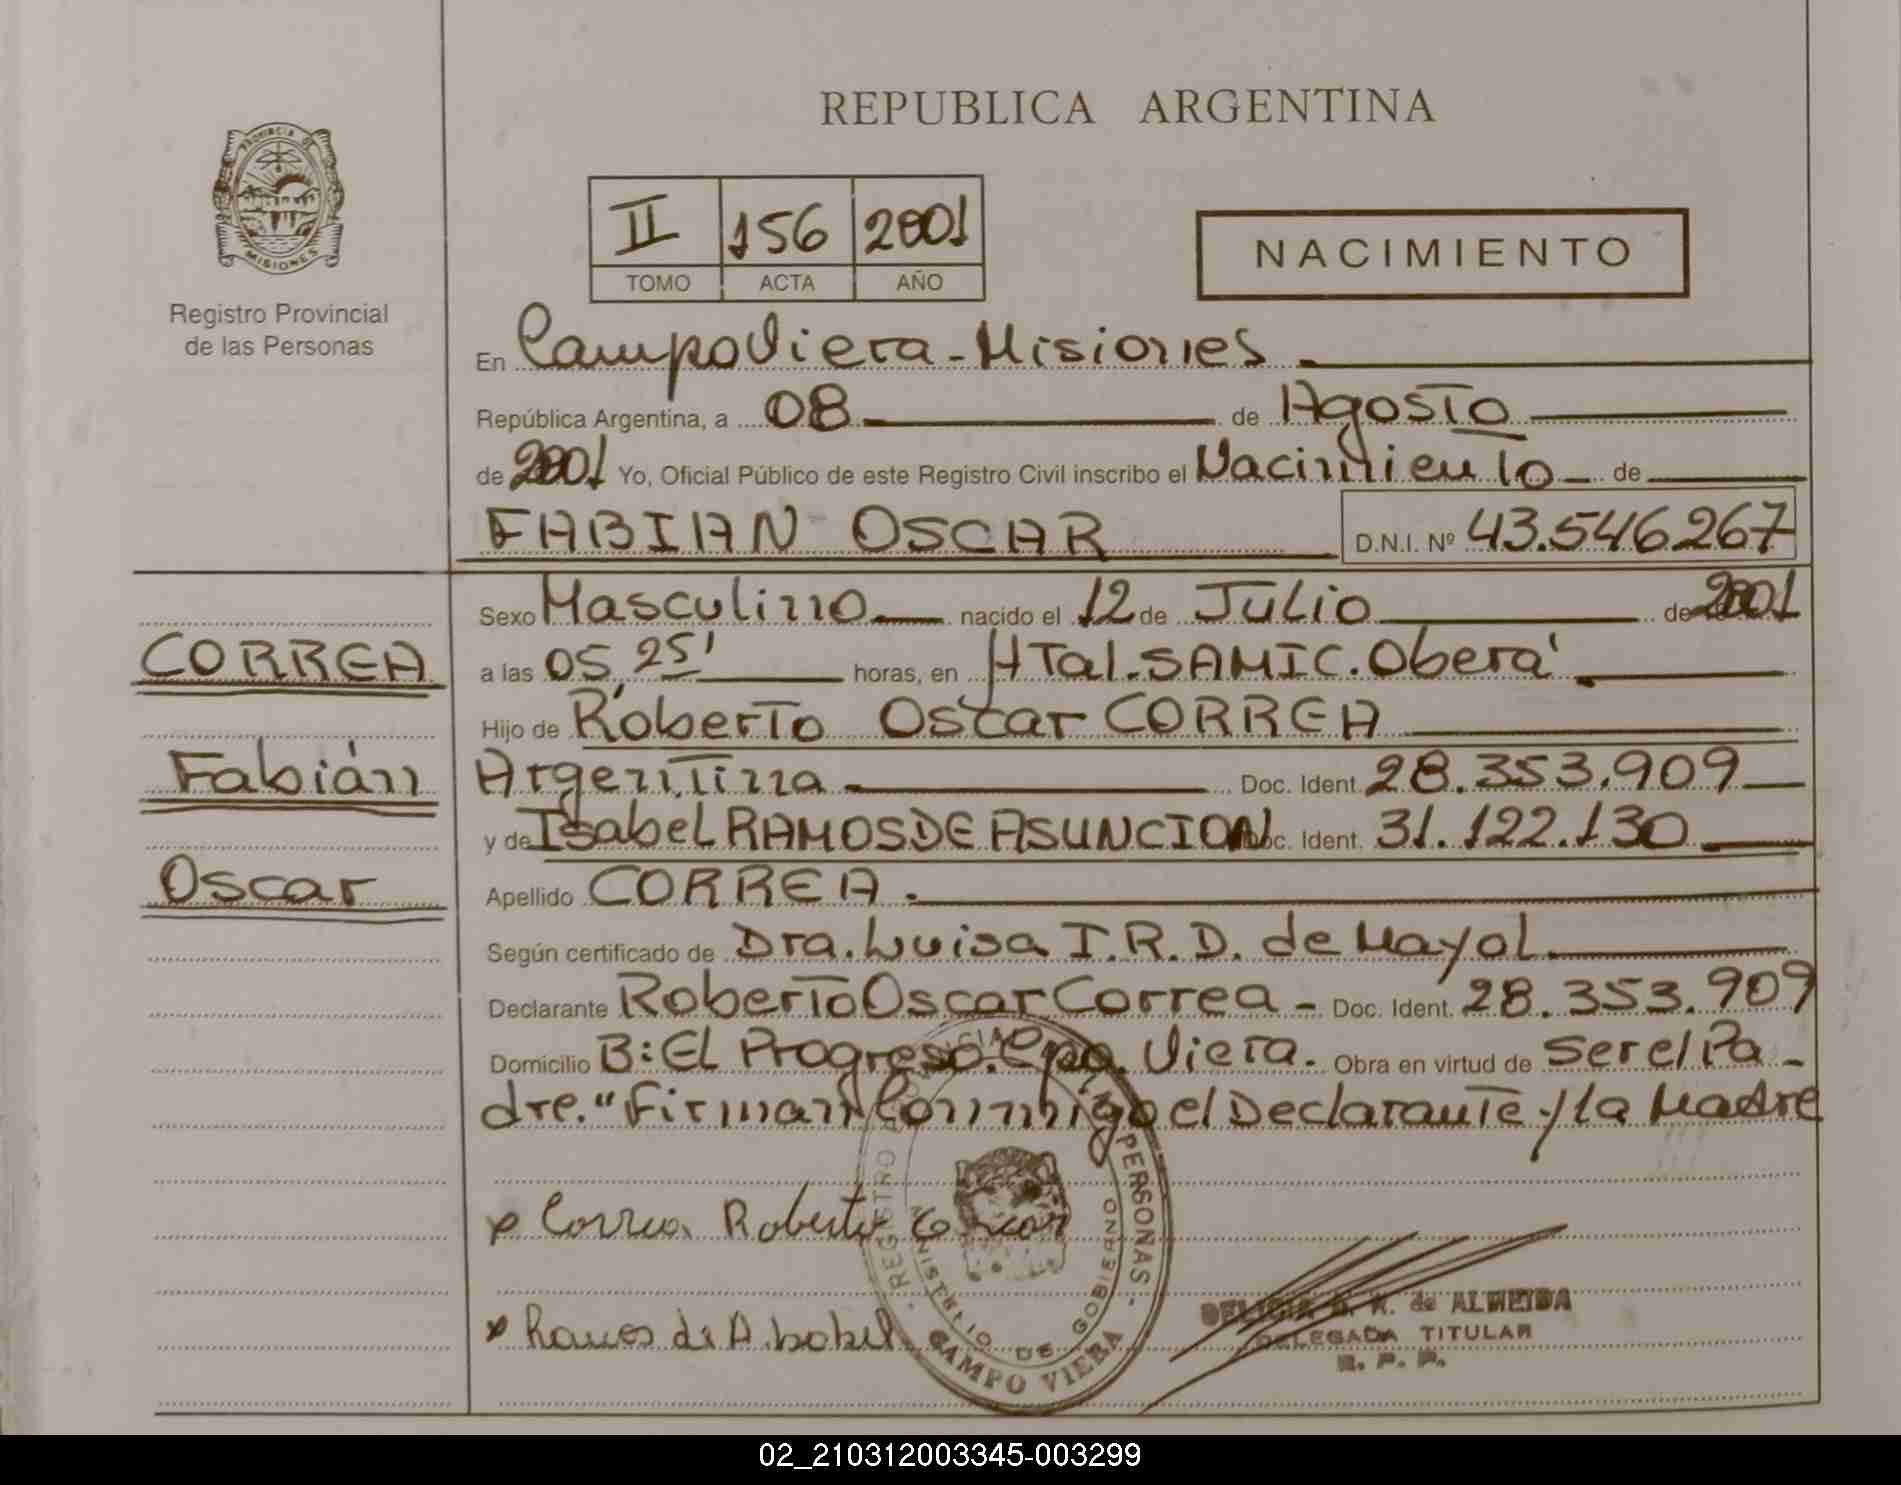 REPUBLICA ARGENTINA
PROVINCIA DE
MISIONES
Registro Provincial
de las Personas
II 156 2001
TOMO ACTA AÑO
NACIMIENTO
En Campo Viera - Misiones
República Argentina, a 08 de Agosto
de 2001 Yo, Oficial Público de este Registro Civil inscribo el Nacimiento de
FABIAN OSCAR D.N.I. Nº 43.546.267
Sexo Masculino nacido el 12 de Julio de 2001
CORREA
a las 05,25' horas, en HTal. SAMIC. Oberá
Hijo de Roberto Oscar CORREA
Fabián
Argentina Doc. Ident. 28.353.909
y de Isabel RAMOS DE ASUNCION Doc. Ident. 31.122.130
Oscar
Apellido CORREA.
Según certificado de Dra. Luisa I.R.D. de Mayol
Declarante Roberto Oscar Correa - Doc. Ident. 28.353.909
Domicilio B: El Progreso. Cpo. Viera. Obra en virtud de ser el Pa-
dre. "Firman Conmigo el Declarante y la Madre
x Correa, Roberto Oscar
x Ramos de A. Isabel
REGISTRO PERSONAS
MINISTERIO DE GOBIERNO
CAMPO VIERA
de ALMEIDA
DELEGADA TITULAR
R. P. P.
02_210312003345-003299